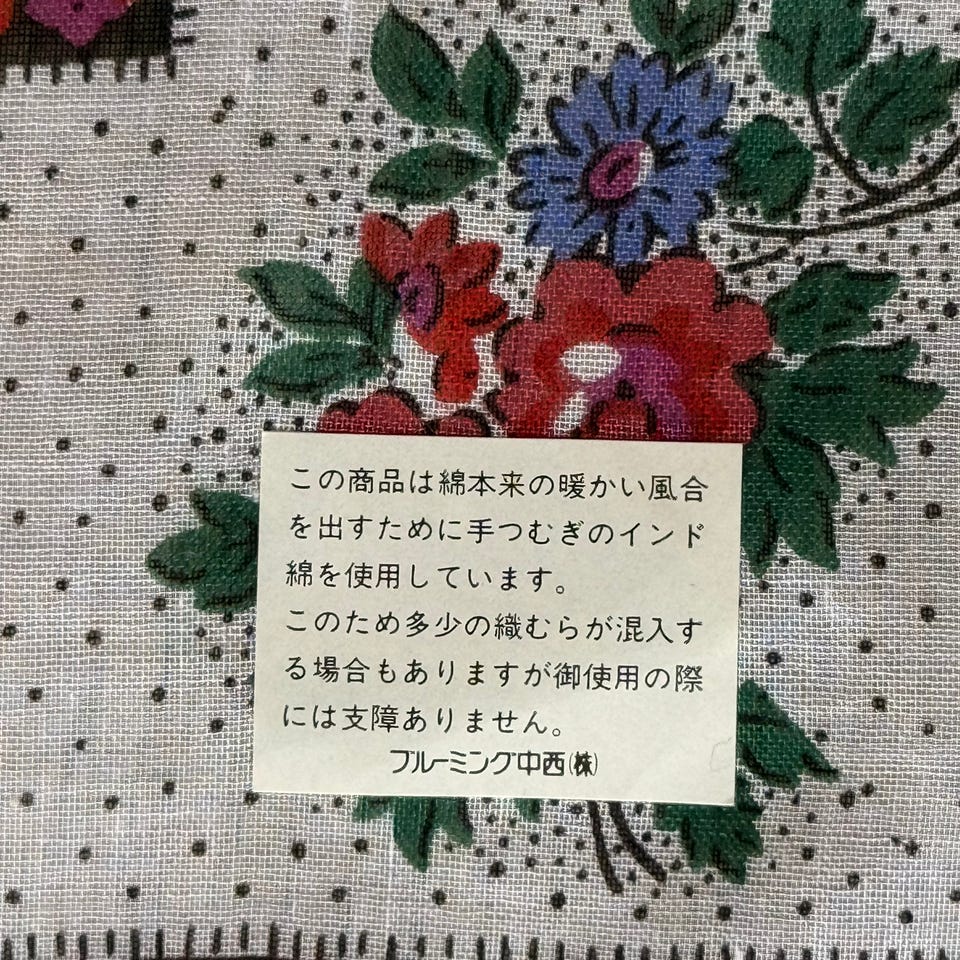 この商品は綿本来の暖かい風合
を出すために手つむぎのインド
綿を使用しています。
このため多少の織むらが混入す
る場合もありますが御使用の際
には支障ありません。
ブルーミング中西(株)